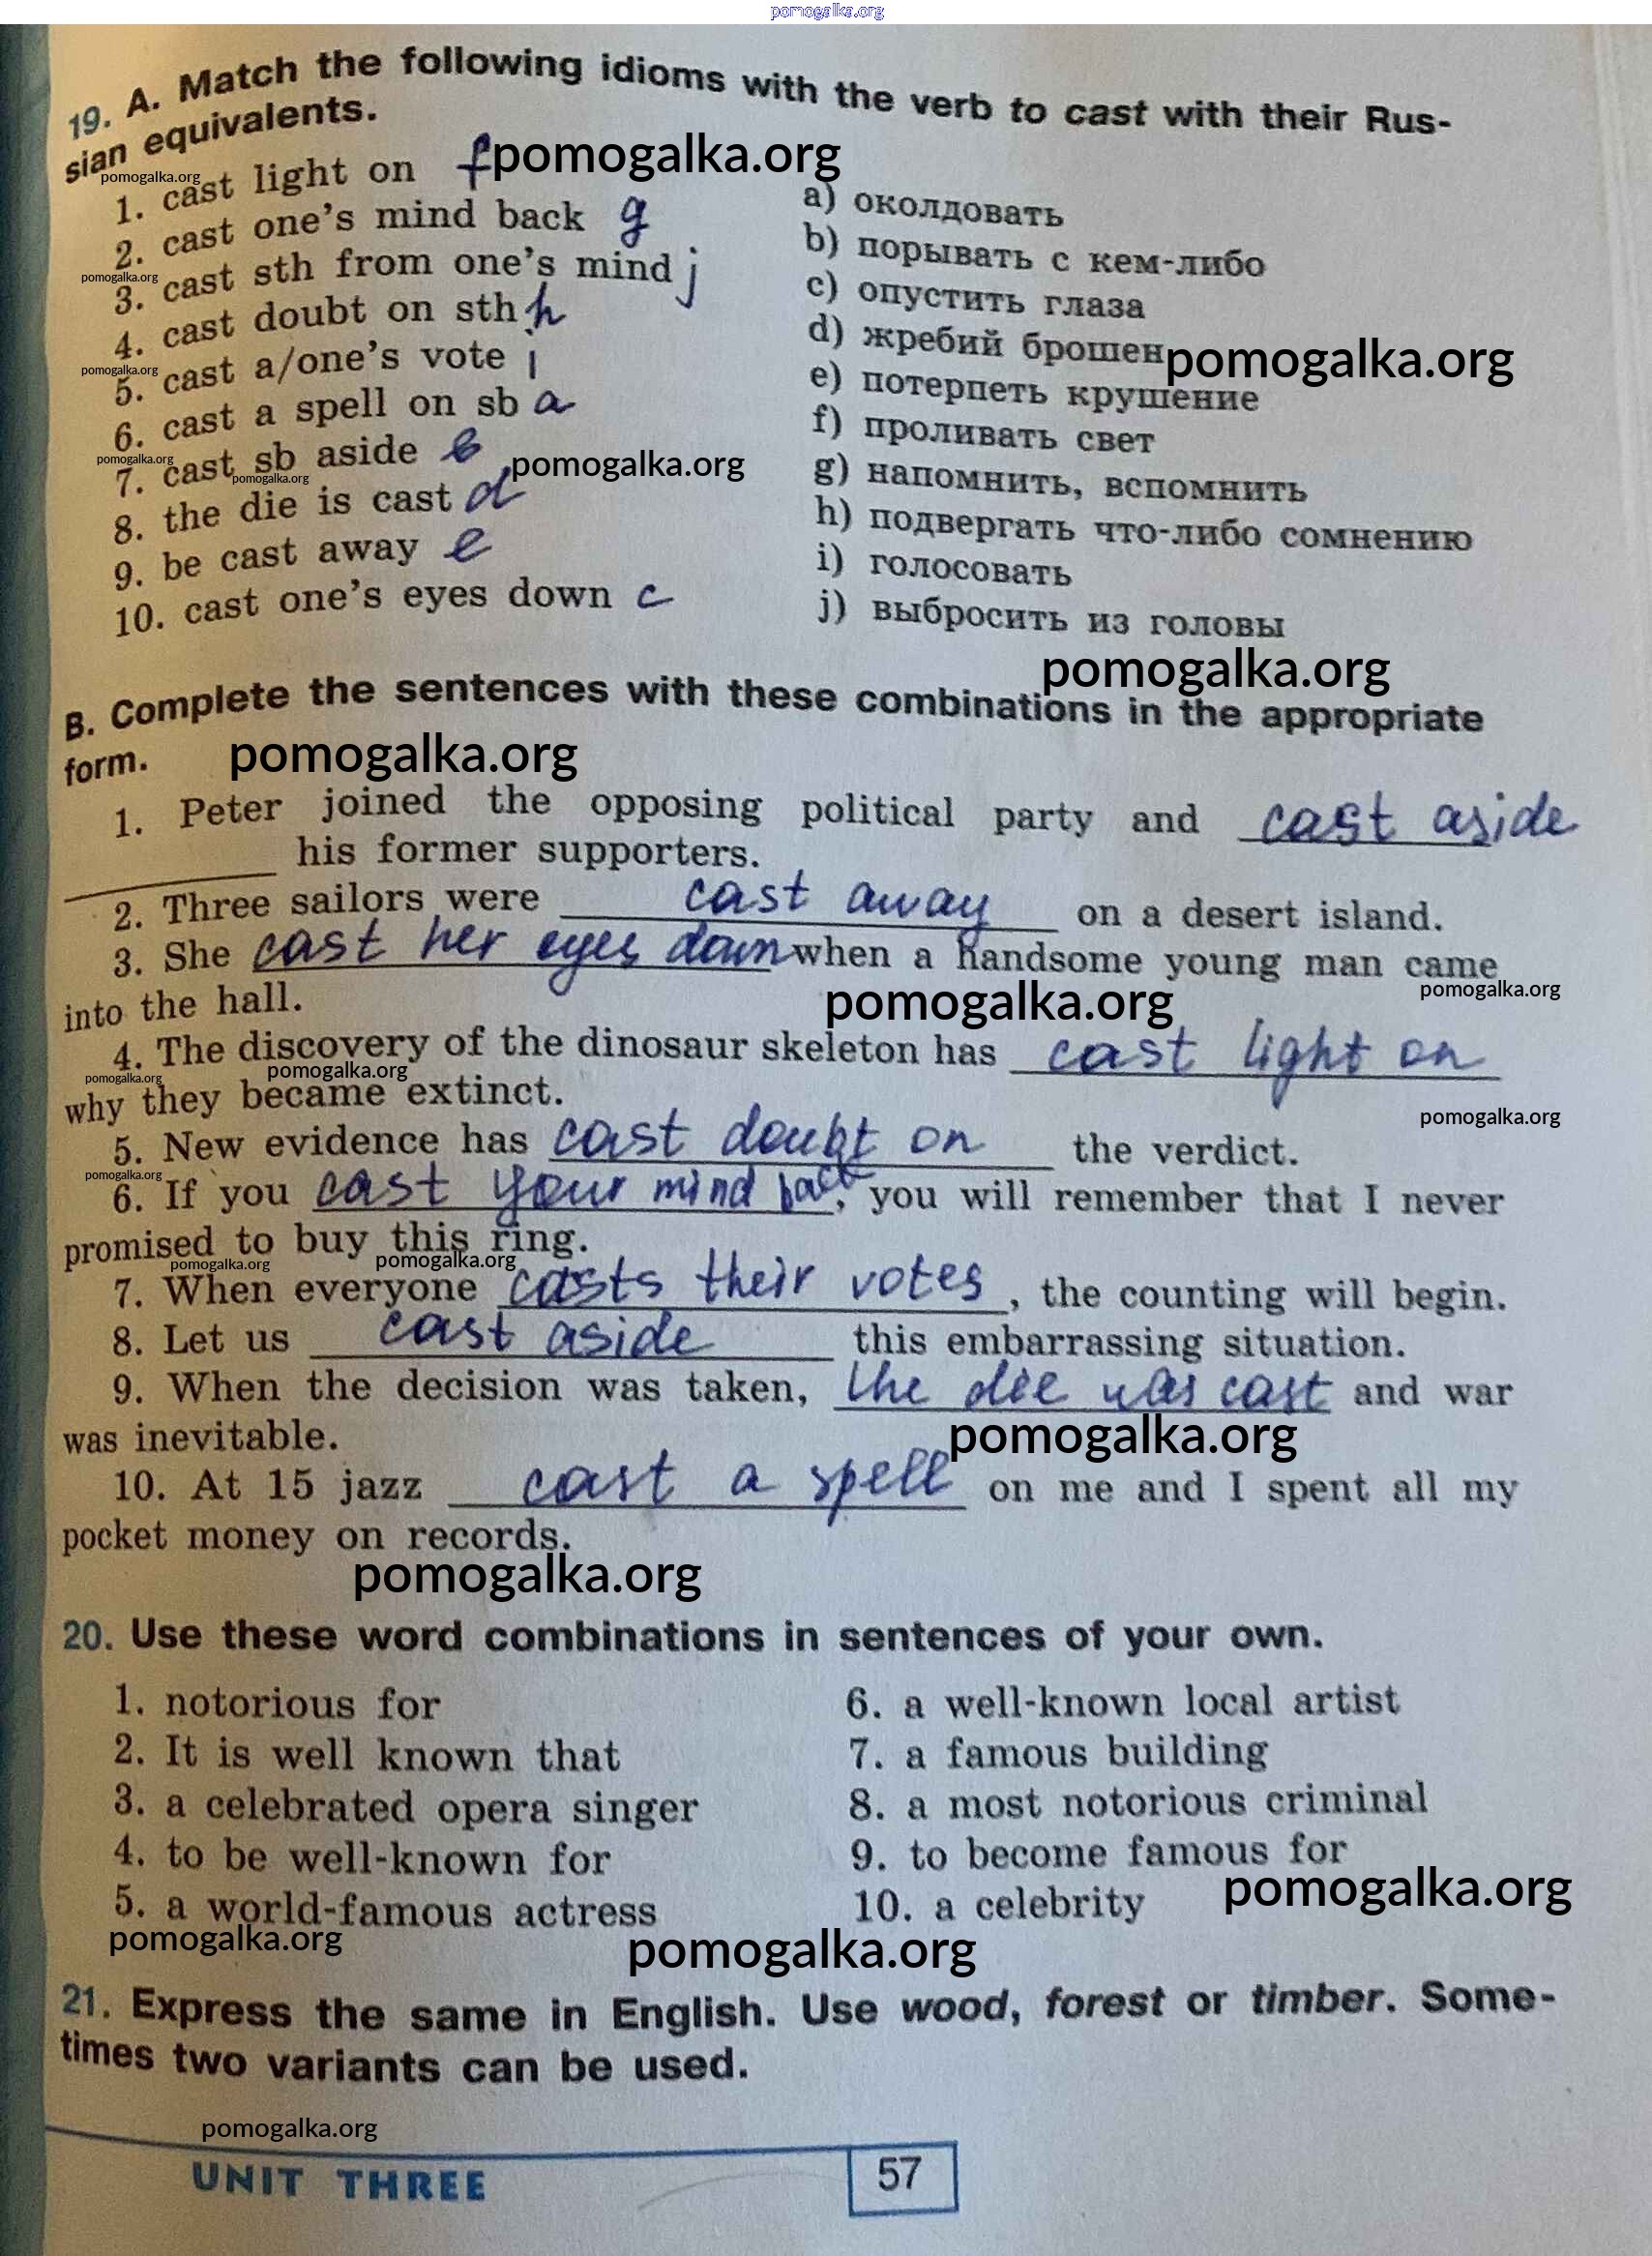 pomogalka.org
19. A. Match the following idioms with the verb to cast with their Rus-
sian equivalents.
pomogalka.org
pomogalka.org
1. cast light on f
2. cast one's mind back g
pomogalka.org
3. cast sth from one's mind j
4. cast doubt on sth h
pomogalka.org
5. cast a/one's vote i
6. cast a spell on sb a
pomogalka.org
7. cast sb aside b
pomogalka.org
pomogalka.org
8. the die is cast d
9. be cast away e
10. cast one's eyes down c
a) околдовать
b) порывать с кем-либо
c) опустить глаза
d) жребий брошен
pomogalka.org
e) потерпеть крушение
f) проливать свет
g) напомнить, вспомнить
h) подвергать что-либо сомнению
i) голосовать
j) выбросить из головы
pomogalka.org
B. Complete the sentences with these combinations in the appropriate
form.
pomogalka.org
1. Peter joined the opposing political party and cast aside
his former supporters.
2. Three sailors were cast away on a desert island.
3. She cast her eyes down when a handsome young man came
pomogalka.org
into the hall.
pomogalka.org
4. The discovery of the dinosaur skeleton has cast light on
pomogalka.org
pomogalka.org
why they became extinct.
pomogalka.org
5. New evidence has cast doubt on the verdict.
pomogalka.org
6. If you cast your mind back, you will remember that I never
promised to buy this ring.
pomogalka.org
pomogalka.org
7. When everyone casts their votes, the counting will begin.
8. Let us cast aside this embarrassing situation.
9. When the decision was taken, the die was cast and war
was inevitable.
pomogalka.org
10. At 15 jazz cast a spell on me and I spent all my
pocket money on records.
pomogalka.org
20. Use these word combinations in sentences of your own.
1. notorious for
2. It is well known that
3. a celebrated opera singer
4. to be well-known for
5. a world-famous actress
6. a well-known local artist
7. a famous building
8. a most notorious criminal
9. to become famous for
10. a celebrity
pomogalka.org
pomogalka.org
pomogalka.org
21. Express the same in English. Use wood, forest or timber. Some-
times two variants can be used.
pomogalka.org
UNIT THREE
57